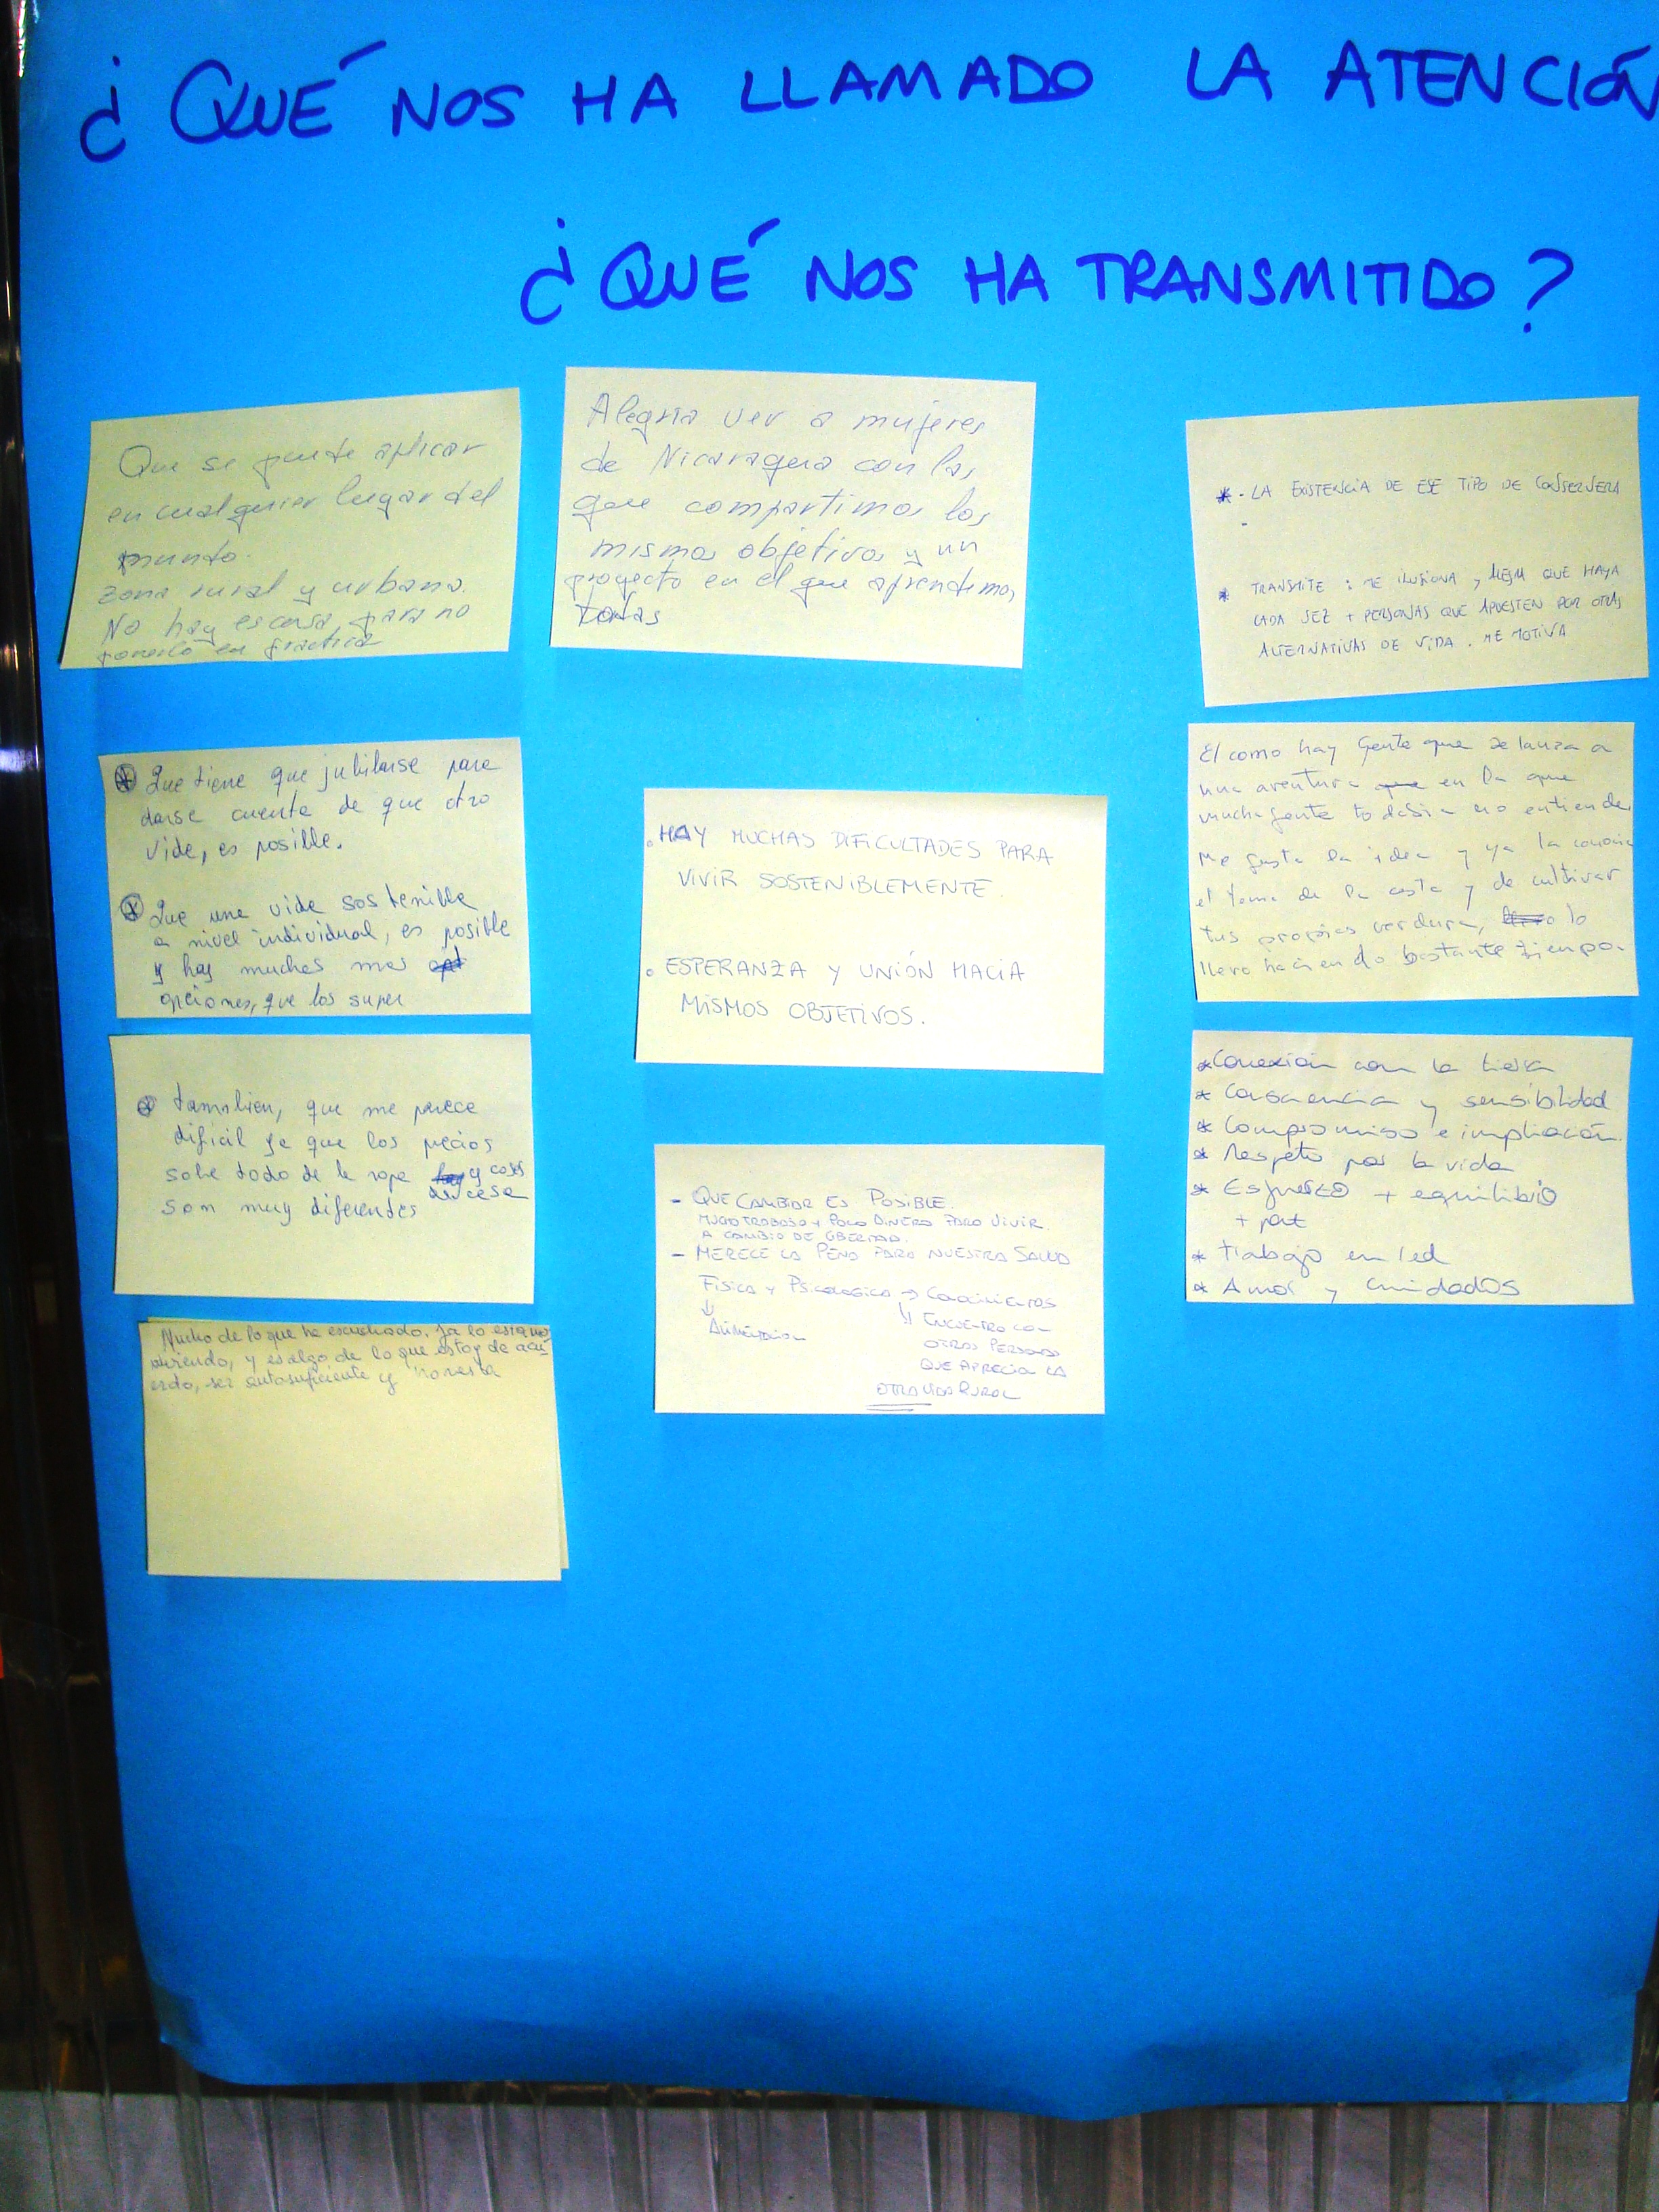 ¿QUÉ NOS HA LLAMADO LA ATENCIÓN
¿QUÉ NOS HA TRANSMITIDO?
Que se puede aplicar
en cualquier lugar del
mundo.
zona rural y urbana.
No hay escusa para no
ponerlo en practica
Alegria ver a mujeres
de Nicaragua con las
que compartimos los
mismos objetivos y un
proyecto en el que aprendemos
todas
* - LA EXISTENCIA DE ESE TIPO DE CONSERVERA
-
* TRANSMITE : ME ILUSIONA Y ALEGRA QUE HAYA
CADA VEZ + PERSONAS QUE APUESTEN POR OTRAS
ALTERNATIVAS DE VIDA. ME MOTIVA
Que tiene que jubilarse para
darse cuenta de que otra
vida, es posible.
Que una vida sostenible
a nivel individual, es posible
y hay muchas mas
opciones, que los super
tambien, que me parece
dificil ya que los precios
sobre todo de la ropa y cosas
de casa
son muy diferentes
Mucho de lo que he escuchado, ya lo estamos
viviendo, y es algo de lo que estoy de acu-
erdo, ser autosuficiente y
. HAY MUCHAS DIFICULTADES PARA
VIVIR SOSTENIBLEMENTE.
. ESPERANZA Y UNIÓN HACIA
MISMOS OBJETIVOS.
- QUE CAMBIAR ES POSIBLE.
MUCHO TRABAJO Y POCO DINERO PARA VIVIR.
A CAMBIO DE LIBERTAD.
- MERECE LA PENA PARA NUESTRA SALUD
FISICA Y PSICOLOGICA → CONOCIMIENTOS
↓ ↓ ENCUENTRO CON
ALIMENTACION OTRAS PERSONAS
QUE APRECIA LA
OTRA VIDA RURAL
El como hay gente que se lanza a
una aventura en la que
mucha gente todavia no entiende.
Me gusta la idea y ya la conocia
el tema de la cesta y de cultivar
tus propias verduras, lo
llevo haciendo bastante tiempo.
* Conexión con la tierra
* Consciencia y sensibilidad
* Compromiso e implicación.
* Respeto por la vida
* Esfuerzo + equilibrio
+ part
* Trabajo en red
* Amor y cuidados